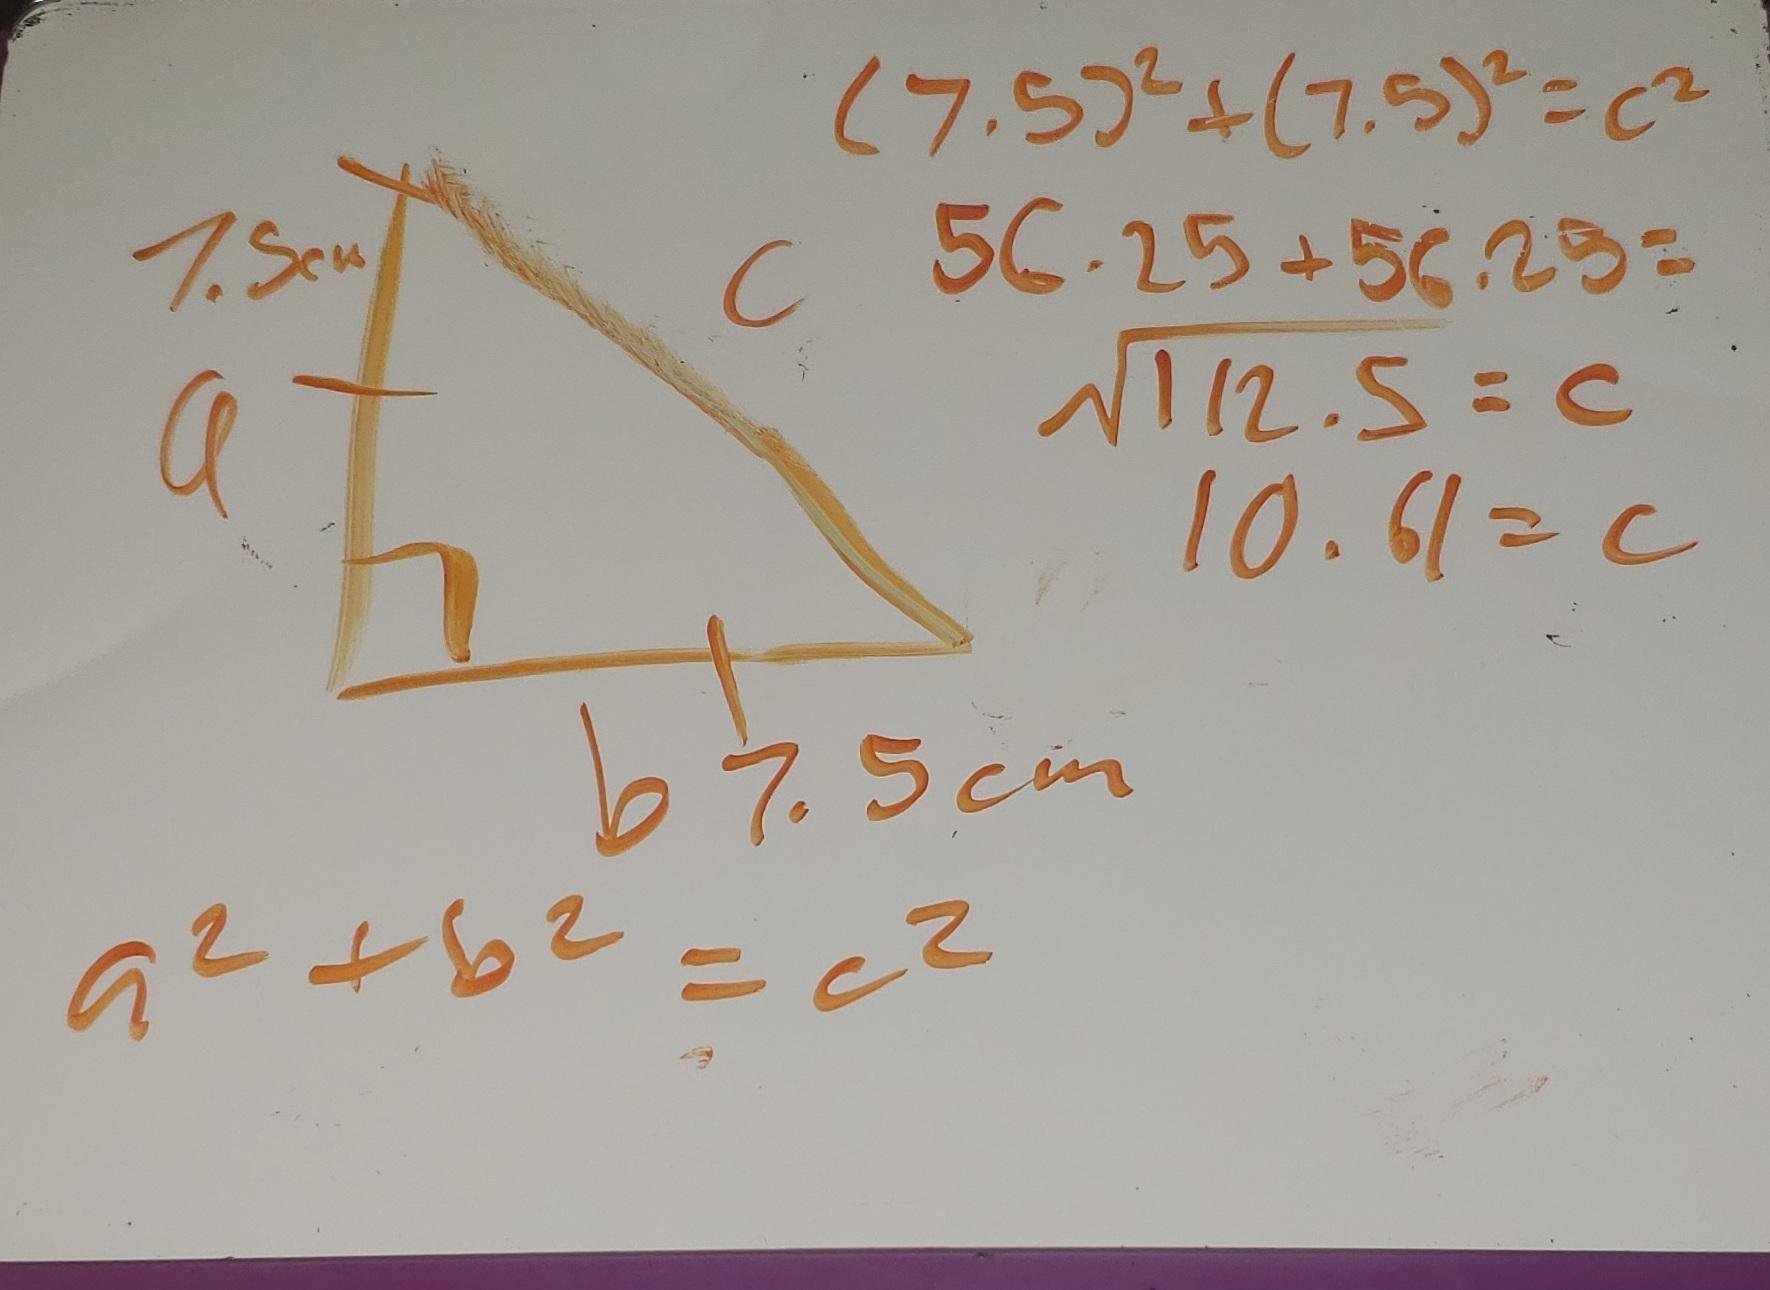 (7.5)²+(7.5)²=c²
56.25+56.25=
√112.5=c
10.61=c
7.5cm
c
a
b 7.5cm
a²+b²=c²